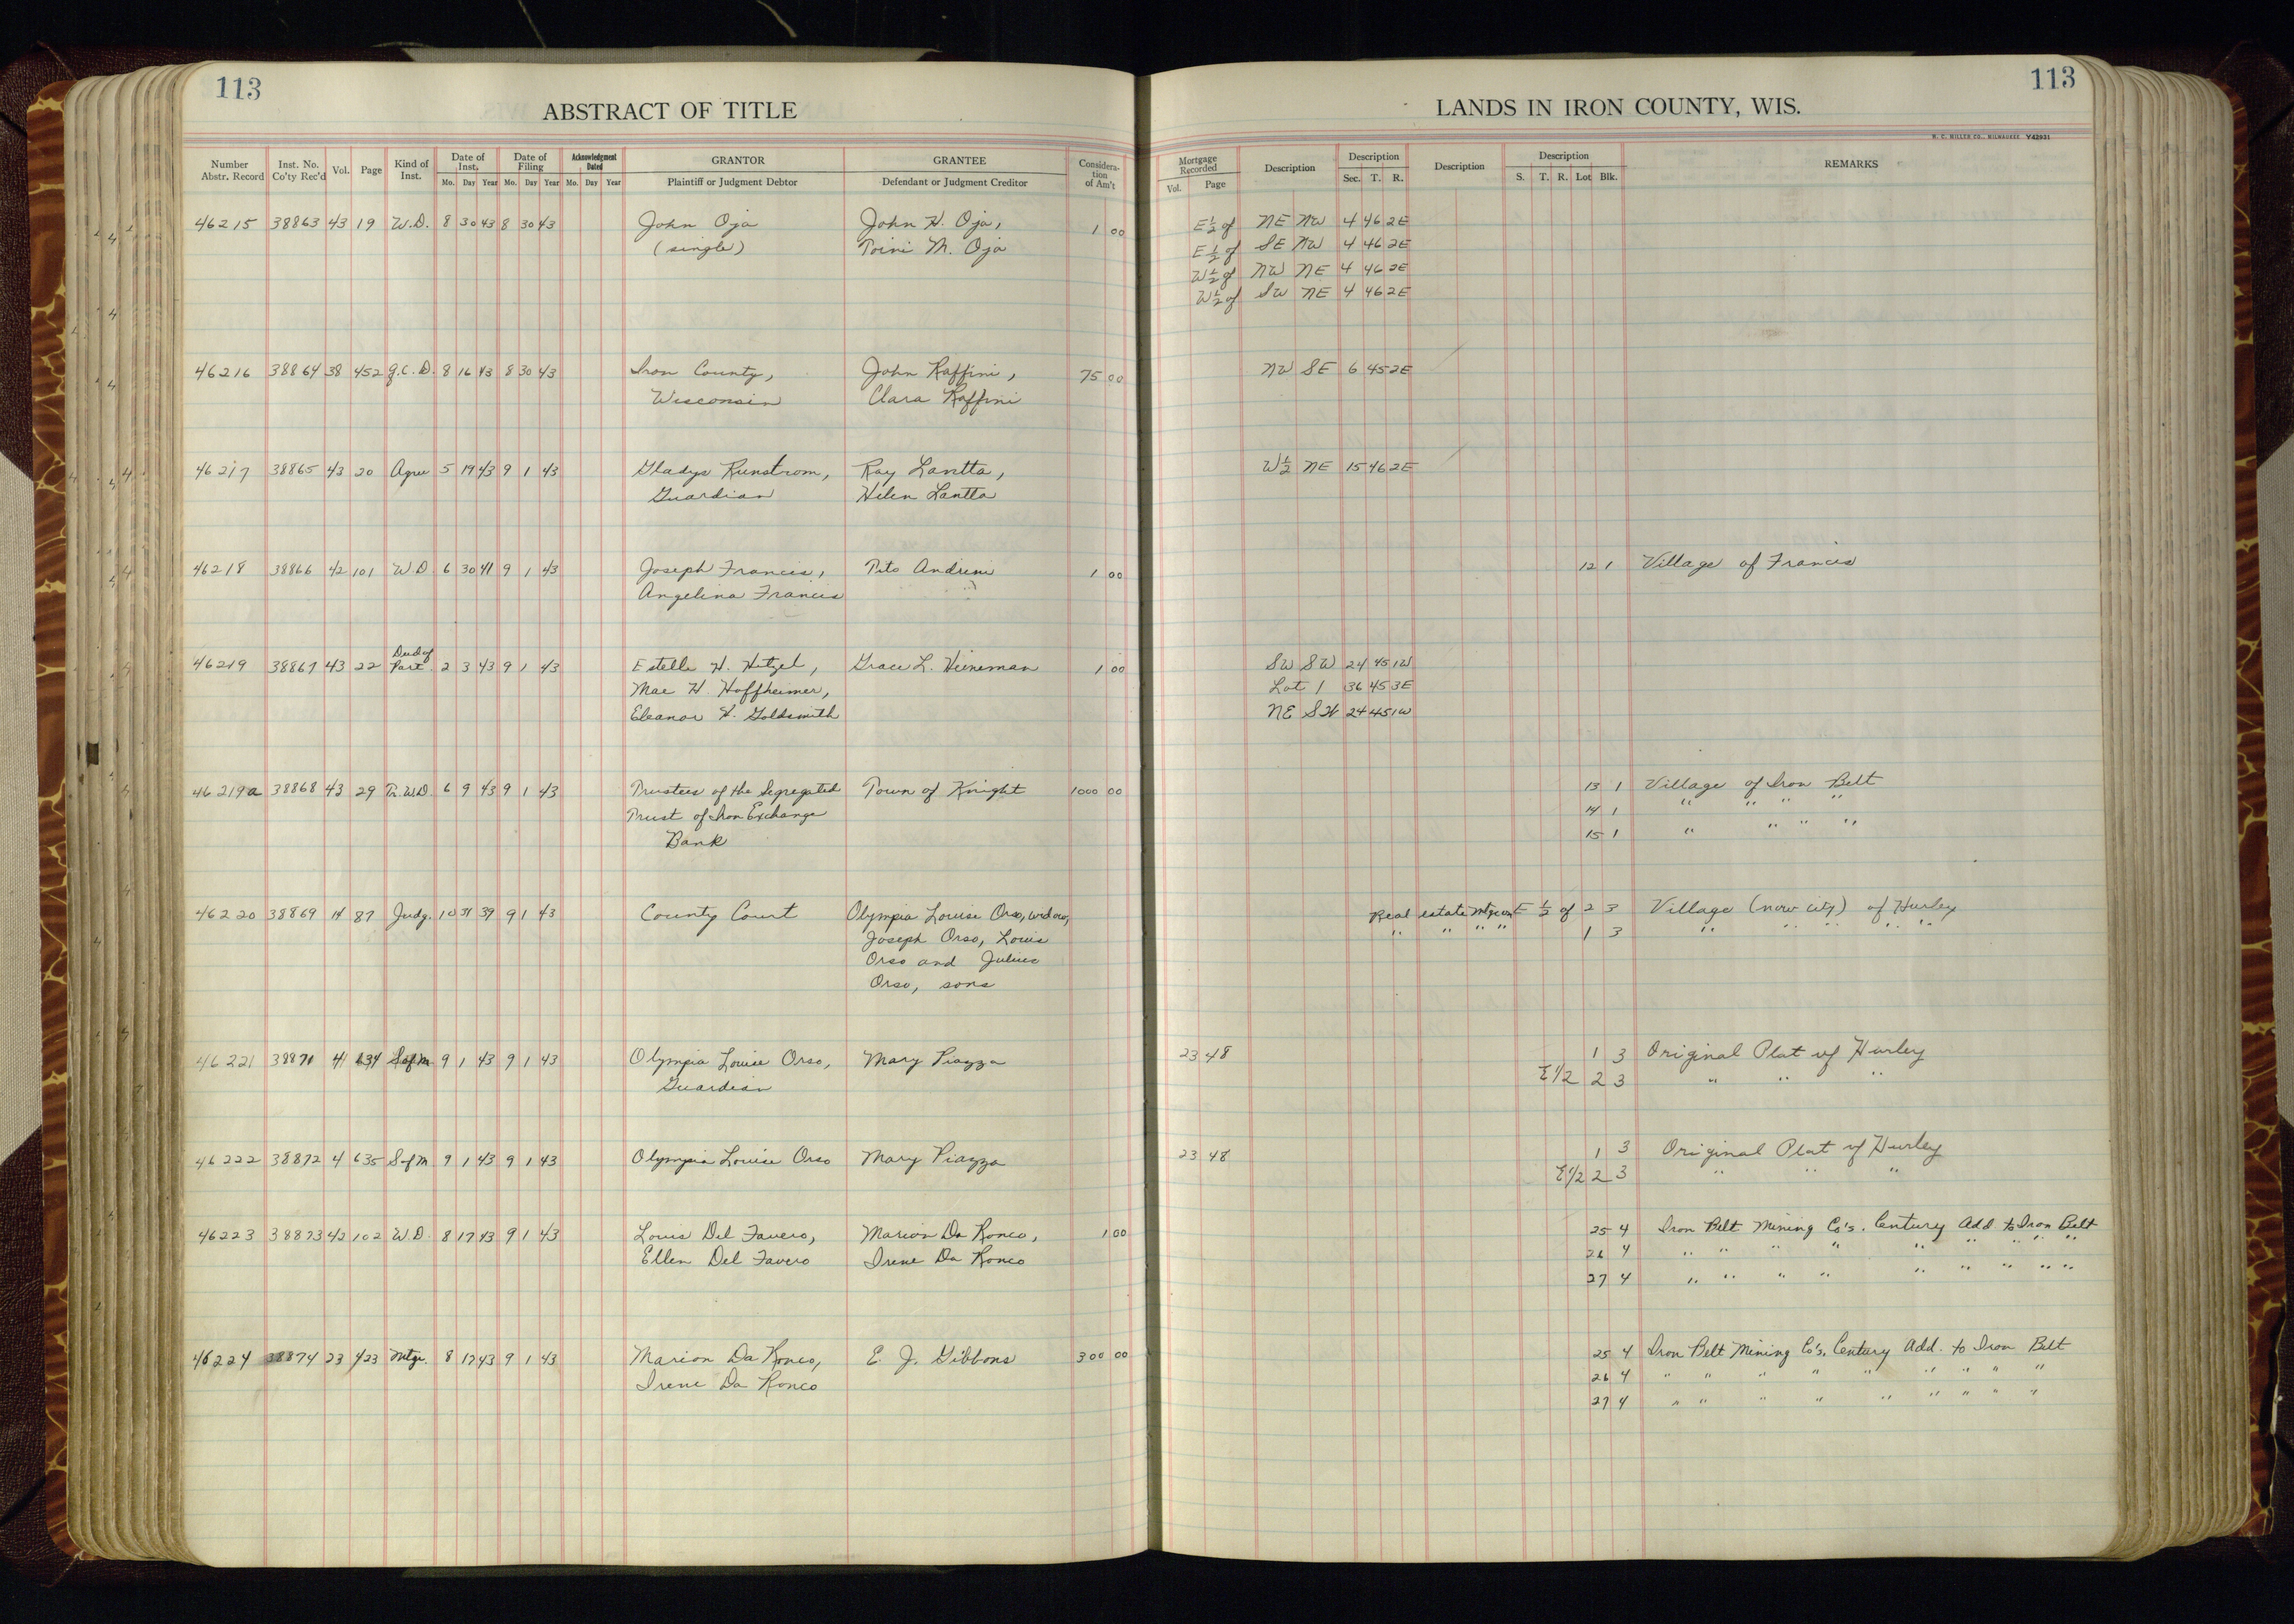 113
ABSTRACT OF TITLE
Number Abstr. Record Inst. No. Co'ty Rec'd Vol. Page Kind of Inst. Date of Inst. Mo. Day Year Date of Filing Mo. Day Year Acknowledgment Dated Mo. Day Year GRANTOR Plaintiff or Judgment Debtor GRANTEE Defendant or Judgment Creditor Considera- tion of Am't
46215 38863 43 19 W.D. 8 30 43 8 30 43 John Oja John H. Oja, 1 00
(single) Toini M. Oja
46216 38864 38 452 Q.C.D. 8 16 43 8 30 43 Iron County, John Raffini, 75 00
Wisconsin Clara Raffini
46217 38865 43 20 Agree 5 19 43 9 1 43 Gladys Runstrom, Ray Lantta,
Guardian Helen Lantta
46218 38866 42 101 W.D. 6 30 41 9 1 43 Joseph Francis, Tito Andreini 1 00
Angelina Francis
Deed of
46219 38867 43 22 Part. 2 3 43 9 1 43 Estelle H. Hitzel, Grace L. Heineman 1 00
Mae H. Hoffheimer,
Eleanor H. Goldsmith
46219a 38868 43 29 Tr.W.D. 6 9 43 9 1 43 Trustees of the Segregated Town of Knight 1000 00
Trust of Iron Exchange
Bank
46220 38869 14 87 Judg. 10 31 39 9 1 43 County Court Olympia Louise Orso, widow,
Joseph Orso, Louis
Orso and Julius
Orso, sons
46221 38871 41 634 S of M 9 1 43 9 1 43 Olympia Louise Orso, Mary Piazza
Guardian
46222 38872 4 635 S of M 9 1 43 9 1 43 Olympia Louise Orso Mary Piazza
46223 38873 42 102 W.D. 8 17 43 9 1 43 Louis Del Favero, Marion Da Ronco, 1 00
Ellen Del Favero Irene Da Ronco
46224 38874 23 423 Mtge. 8 17 43 9 1 43 Marion Da Ronco, E. J. Gibbons 300 00
Irene Da Ronco
113
LANDS IN IRON COUNTY, WIS.
H. C. MILLER CO., MILWAUKEE Y42931
Mortgage Recorded Vol. Page Description Description Sec. T. R. Description Description S. T. R. Lot Blk. REMARKS
E½ of NE NW 4 46 2E
E½ of SE NW 4 46 2E
W½ of NW NE 4 46 2E
W½ of SW NE 4 46 2E
NW SE 6 45 2E
W½ NE 15 46 2E
12 1 Village of Francis
SW SW 24 45 1W
Lot 1 36 45 3E
NE SW 24 45 1W
13 1 Village of Iron Belt
14 1 " " " "
15 1 " " " "
Real estate Mtge on E ½ of 2 3 Village (now city) of Hurley
" " " " 1 3 " " " " "
23 48 1 3 Original Plat of Hurley
E1/2 2 3 " " "
23 48 1 3 Original Plat of Hurley
E1/2 2 3 " " "
25 4 Iron Belt Mining Co's. Century Add. to Iron Belt
26 4 " " " " " " " " "
27 4 " " " " " " " " "
25 4 Iron Belt Mining Co's. Century Add. to Iron Belt
26 4 " " " " " " " " "
27 4 " " " " " " " " "